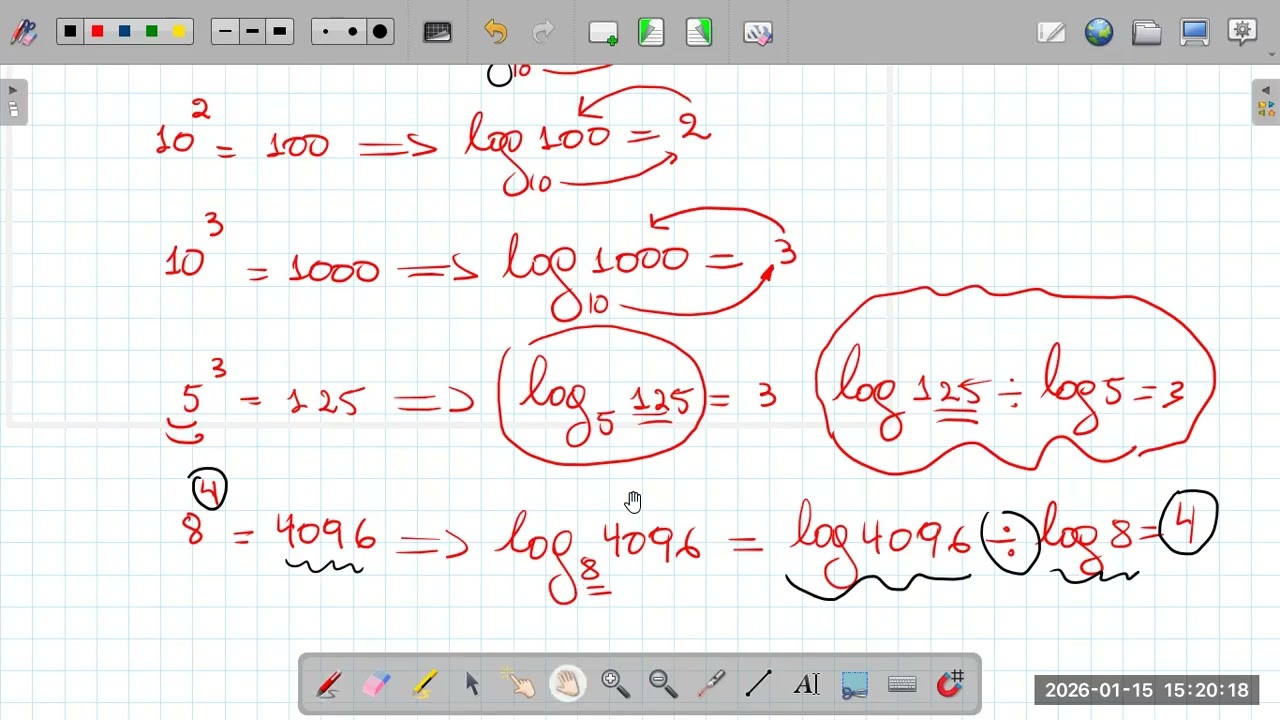 10
10² = 100 => log₁₀ 100 = 2
10³ = 1000 => log₁₀ 1000 = 3
5³ = 125 => log₅ 125 = 3 log 125 ÷ log 5 = 3
8⁴ = 4096 => log₈ 4096 = log 4096 ÷ log 8 = 4
2026-01-15 15:20:18